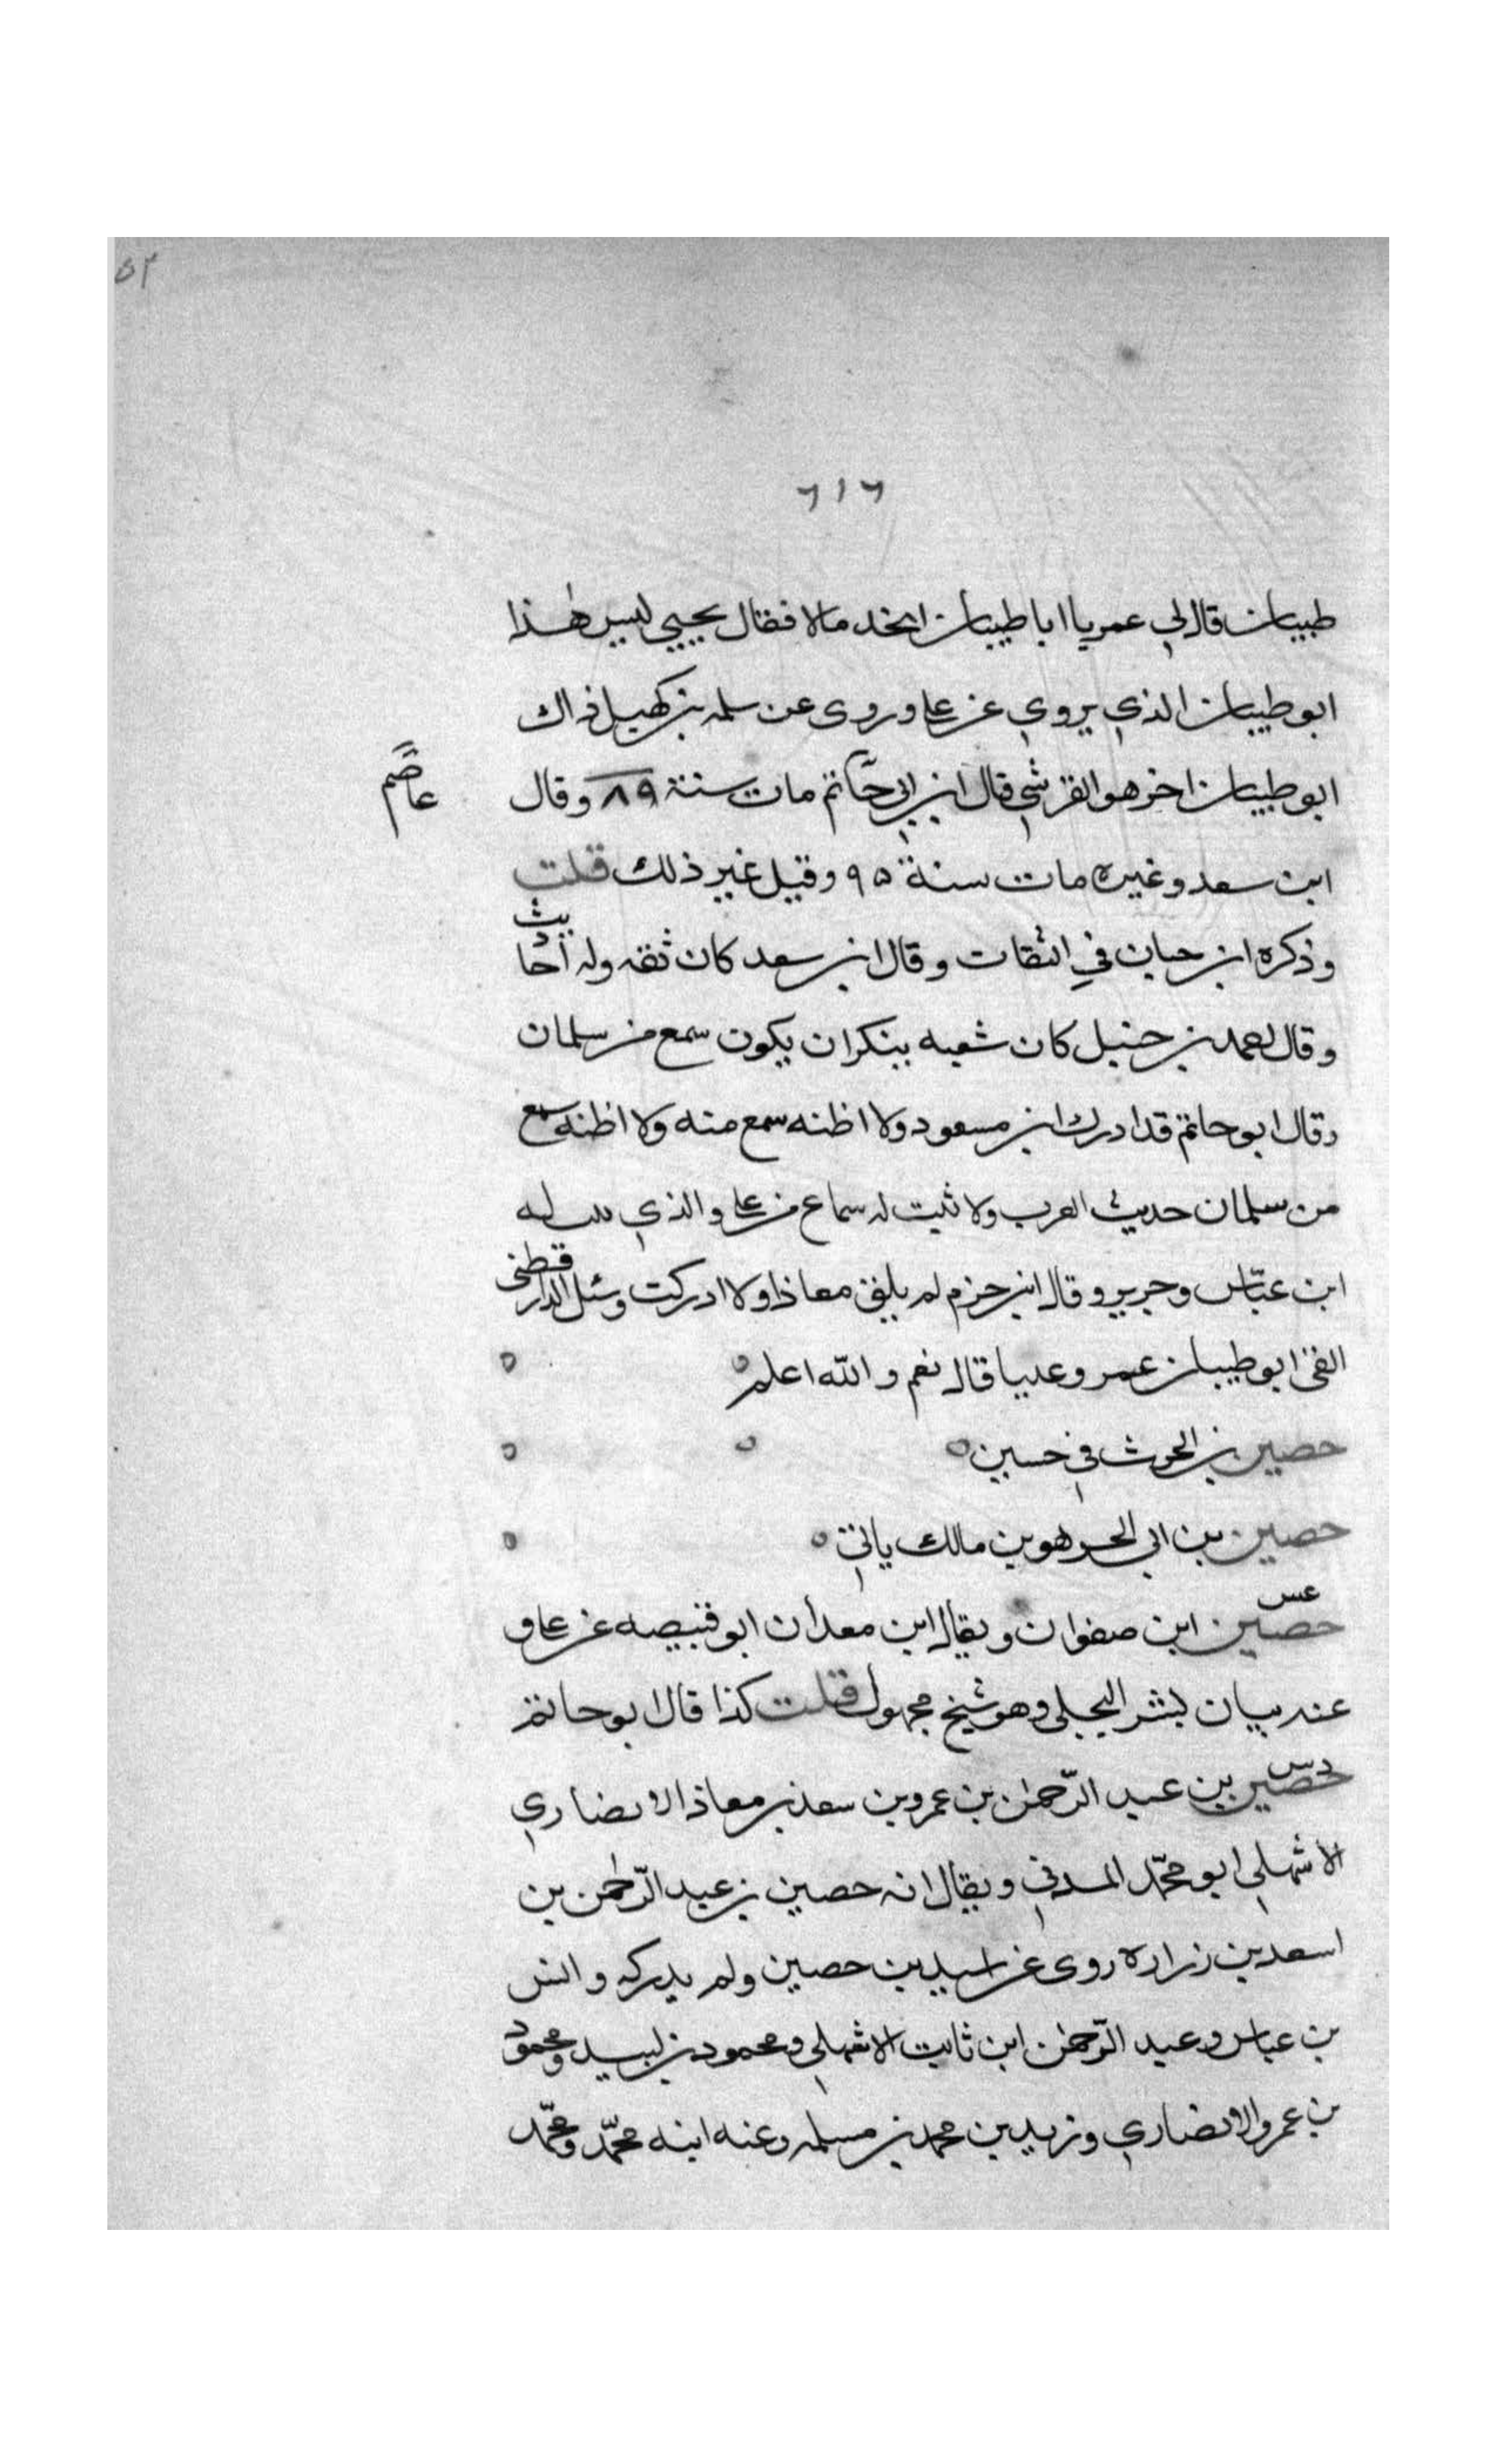 ٥٢
٦١٦
طبيان قال لي عمر يا ابا طيبان اتخذ مالا فقال يحيي ليس هذا
ابو طيبان الذي يروي عن علي وروى عن سلمه بن كهيل ذاك
ابو طيبان اخر هو القرشي قال ابن ابي حاتم مات سنة ٨٩ وقال
عاصم
ابن سعد وغيره مات سنة ٩٥ وقيل غير ذلك قلت
وذكره ابن حبان في الثقات وقال ابن سعد كان ثقه وله احاديث
وقال احمد بن حنبل كان شعبه ينكر ان يكون سمع من سلمان
وقال ابو حاتم قد ادرك ابن مسعود ولا اظنه سمع منه ولا اظنه سمع
من سلمان حديث العرب ولا ثبت له سماع من علي والذي له
ابن عباس وجرير وقال ابن حزم لم يلق معاذا ولا ادركت وسئل الدارقطني
الفى ابو طيبان عمر وعليا قال نعم والله اعلم
حصين بن الحرث في حسين
حصين بن ابي الحر هو بن مالك ياتي
عس
حصين ابن صفوان ويقال ابن معدان ابو قبيصه عن علي و
عنه بيان بشر البجلي وهو شيخ مجهول قلت كذا قال ابو حاتم
دس
حصين بن عبد الرّحمٰن بن عمرو بن سعد بن معاذ الانصاري
الاشهلي ابو محمّد المدني ويقال انه حصين بن عبد الرّحمٰن بن
اسعد بن زراره روى عن اسيد بن حصين ولم يدركه وانس
بن عباس وعبد الرّحمٰن ابن ثابت الاشهلي ومحمود بن لبيد ومحمود
بن عمرو الانصاري وزيد بن محمد بن مسلمه وعنه ابنه محمّد ومحمّد